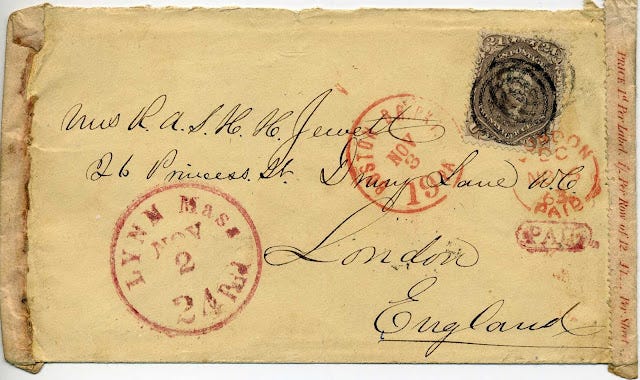 R. A. H. H. Jewett
26 Princess St. Drury Lane W.C.
London
England
LYNN Mass
NOV
2
24 Pd
BOSTON
NOV
3
19
24 24
LONDON
PAID
PAID
PRICE 1d Per Label, Per Row of 12. Per Sheet